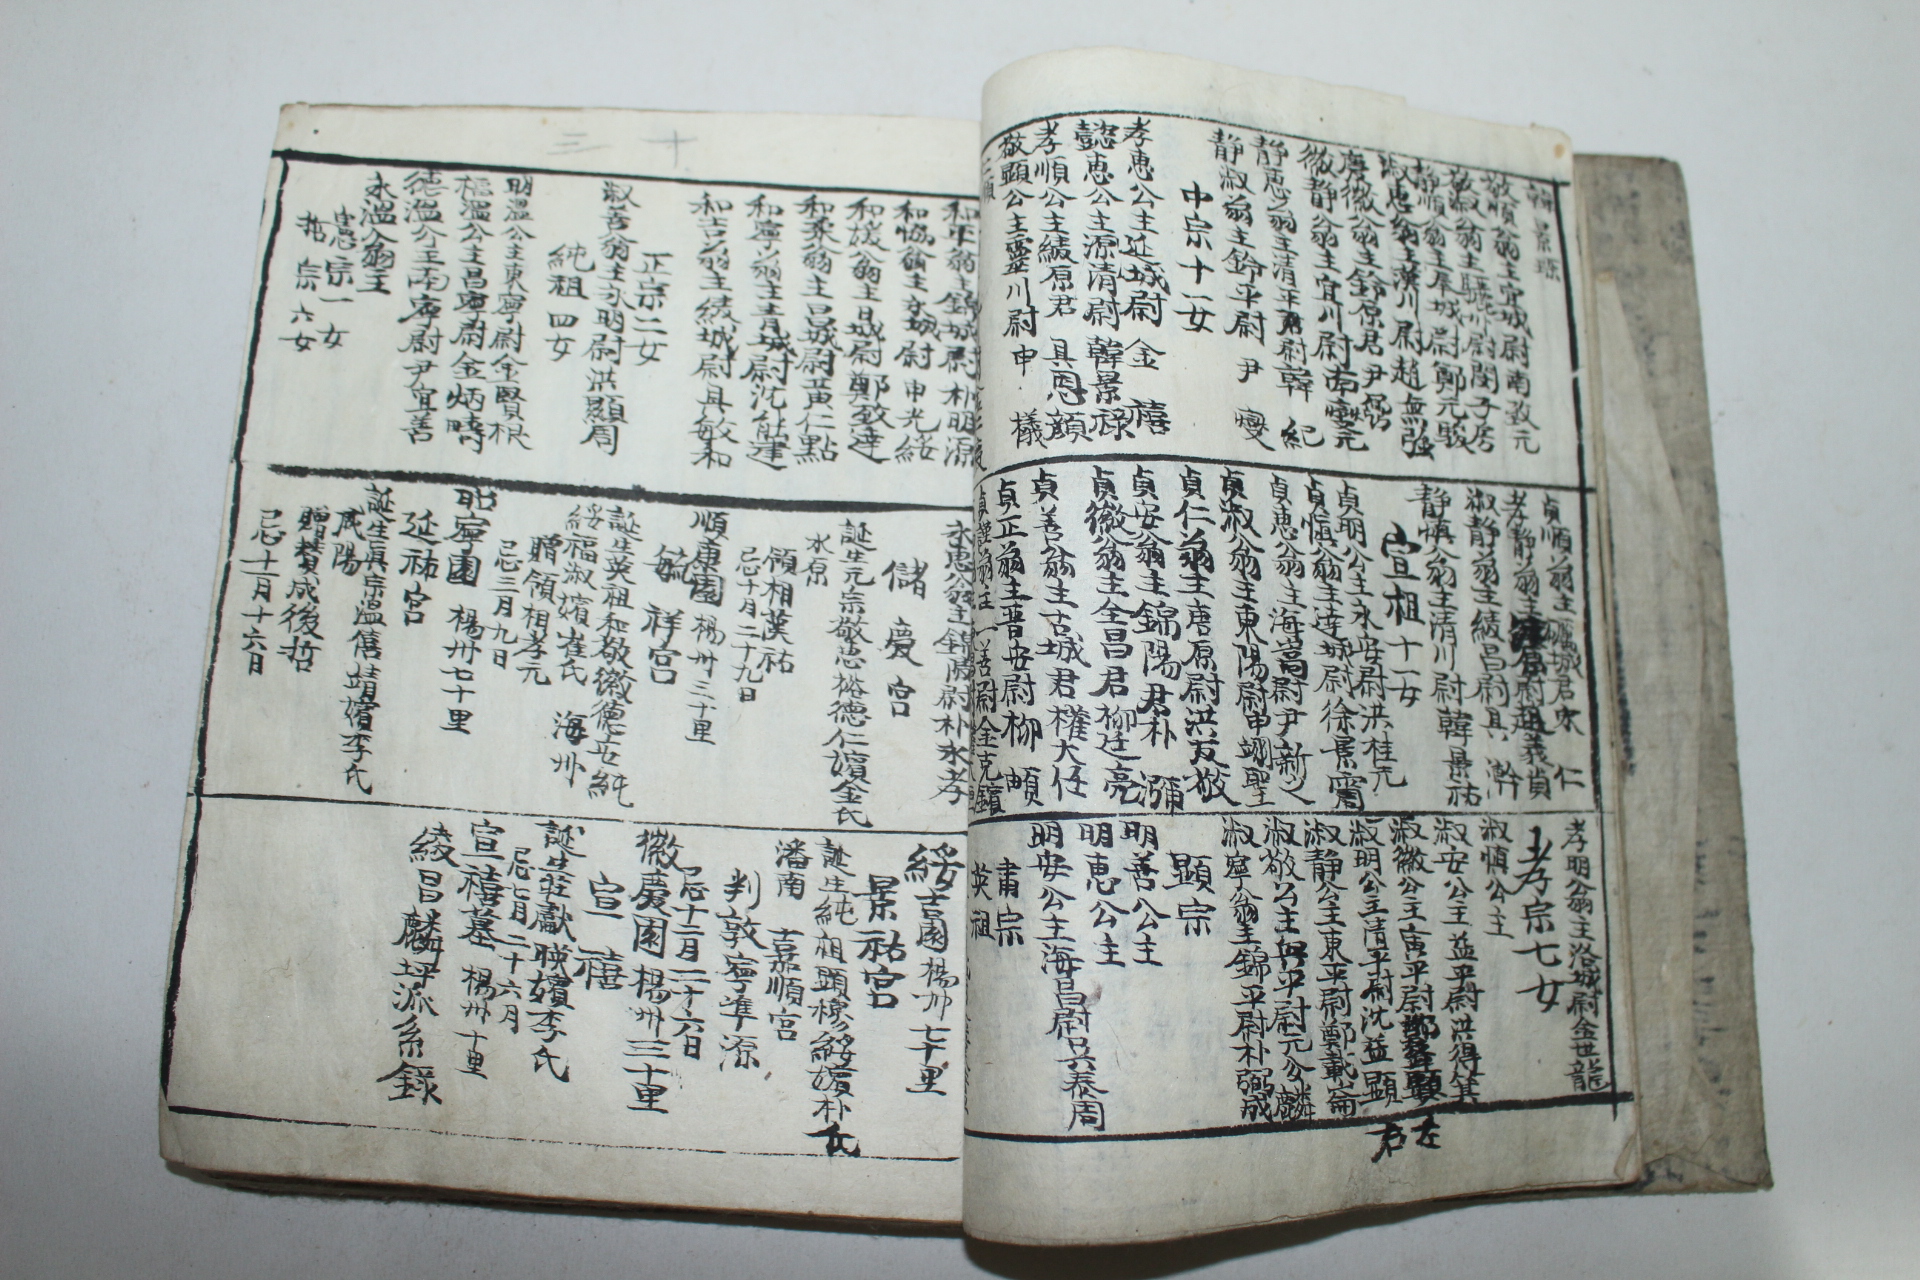 韓景琛
敬順翁主宜城尉南致元
敬淑翁主驪川尉閔子芳
靜順翁主奉城尉鄭元駿
淑惠翁主漢川尉趙無彊
慶徽翁主鈴原君尹
徽靜翁主宜川尉南燮元
靜惠翁主淸平尉韓 紀
靜淑翁主鈴平尉尹 燮
中宗十一女
孝惠公主延城尉金 禧
懿惠公主源清尉韓景祿
孝順公主綾原君具思顏
敬顯公主靈川尉申 檥
貞順翁主礪城君宋 仁
孝靜翁主尉趙義貞
淑靜翁主綾昌尉具 澣
靜愼翁主清川尉韓景祐
宣祖十一女
貞明公主永安尉洪桂元
貞愼翁主達城尉徐景霌
貞惠翁主海嵩尉尹新之
貞淑翁主東陽尉申翊聖
貞仁翁主唐原尉洪友敬
貞安翁主錦陽君朴 瀰
貞徽翁主全昌君柳廷亮
貞善翁主吉城君權大任
貞正翁主晋安尉柳 頔
貞謹翁主一善尉金克鑌
孝明翁主洛城尉金世龍
孝宗七女
淑愼公主
淑安公主益平尉洪得箕
淑徽公主寅平尉鄭齊顯
淑明公主清平尉沈益顯
淑靜公主東平尉鄭載崙
淑敬公主興平尉元夢麟
淑寧翁主錦平尉朴弼成
顯宗
明善公主
明惠公主
明安公主海昌尉吳泰周
肅宗
英祖
左
君
十三
和平翁主錦城尉朴明源
和協翁主永城尉申光綏
和媛翁主日城尉鄭致達
和柔翁主昌城尉黃仁點
和寧翁主靑城尉沈能建
和吉翁主綾城尉具敏和
正宗二女
淑善翁主永明尉洪顯周
純祖四女
明溫公主東寧尉金賢根
福溫公主昌寧尉金炳疇
德溫公主南寧尉尹宜善
永溫翁主
憲宗一女
哲宗六女
永惠翁主錦陵尉朴永孝
儲慶宮
誕生元宗敬惠裕德仁嬪金氏
水原
領相漢祐
忌十月二十九日
順康園 楊州三十里
毓祥宮
誕生英祖和敬徽德安純
綏福淑嬪崔氏 海州
贈領相孝元
忌三月九日
昭寧園 楊州七十里
延祐宮
誕生眞宗溫僖靖嬪李氏
咸陽
贈贊成後哲
忌十一月十六日
綏吉園楊州七十里
景祐宮
誕生純祖顯穆綏嬪朴氏
潘南 嘉順宮
判敦寧準源
忌十二月二十六日
徽慶園楊州三十里
宣禧
誕生莊獻暎嬪李氏
忌七月二十六日
宣禧墓 楊州十里
綾昌麟坪派系錄